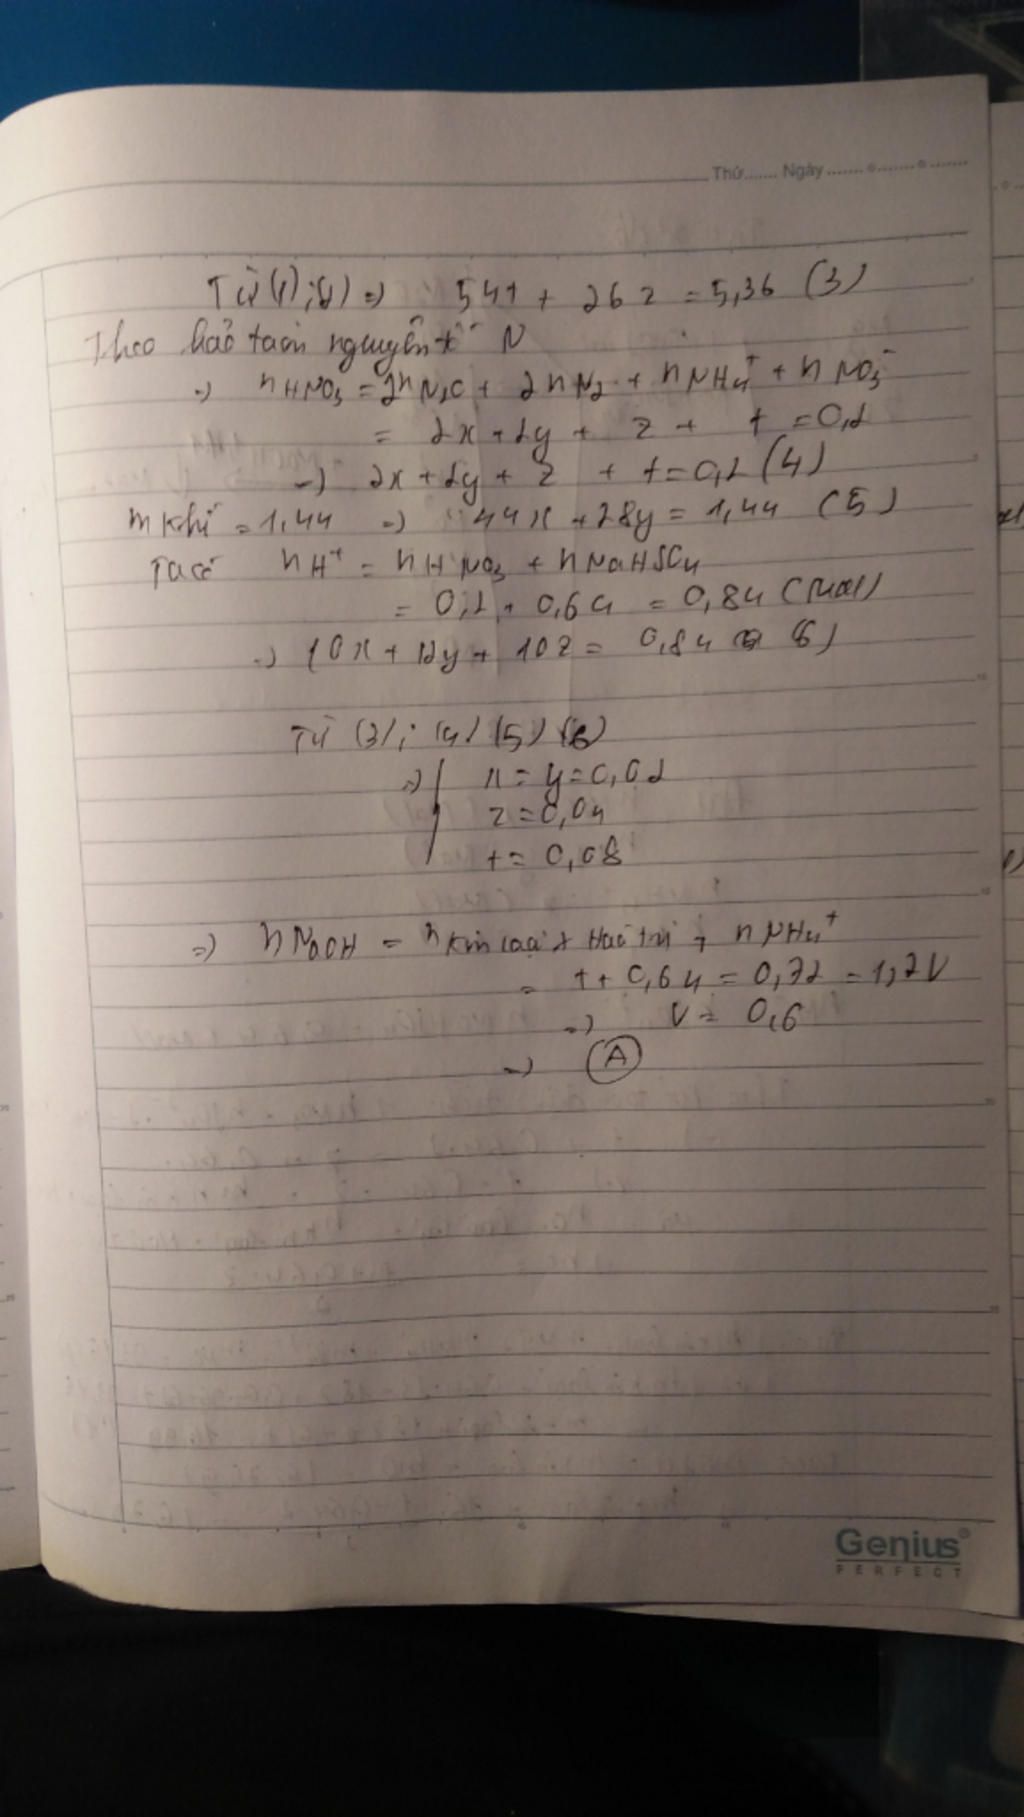 Thứ....... Ngày .......o.......o.......
Từ (1);(2) => 54t + 26z = 5,36 (3)
Theo bảo toàn nguyên tố N
=> nHNO3 = 2nN2O + 2nN2 + nNH4+ + nNO3-
= 2x + 2y + z + t = 0,2
=> 2x + 2y + z + t = 0,2 (4)
m khí = 1,44 => 44x + 28y = 1,44 (5)
Ta có nH+ = nHNO3 + nNaHSO4
= 0,2 + 0,64 = 0,84 (mol)
=> 10x + 12y + 10z = 0,84 (6)
Từ (3); (4) (5) (6)
=> x = y = 0,02
z = 0,04
t = 0,08
=> nNaOH = n kim loại x Hoá trị + nNH4+
= t + 0,64 = 0,72 = 1,2V
=> V = 0,6
=> A
Genius
PERFECT